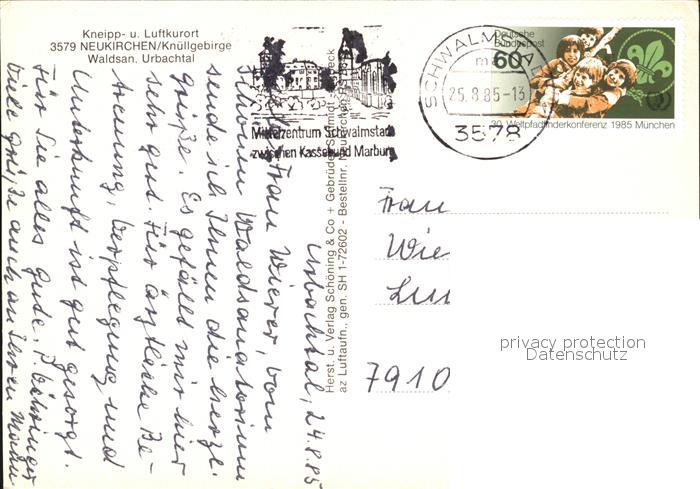 Kneipp- u. Luftkurort
3579 NEUKIRCHEN/Knüllgebirge
Waldsan. Urbachtal
Urbachtal, 24.8.85
Frau Wierer, vom
Waldsanatorium
sende ich Ihnen die herzl.
Grüße. Es gefällt mir hier
sehr gut. Für ärztliche Be-
treuung, Verpflegung und
Unterkunft ist gut gesorgt.
Für Sie alles gute.
Viele Grüße auch an Ihren Mann
Herst. u. Verlag Schöning & Co + Gebrüder Schmidt
az Luftaufn., gen. SH 1-72602 - Bestellnr.
Mittelzentrum Schwalmstadt
zwischen Kassel und Marburg
SCHWALMSTADT
25.8.85-13
3578
Deutsche
Bundespost
60
30. Weltpfadfinderkonferenz 1985 München
Frau
Wie
7910
privacy protection
Datenschutz